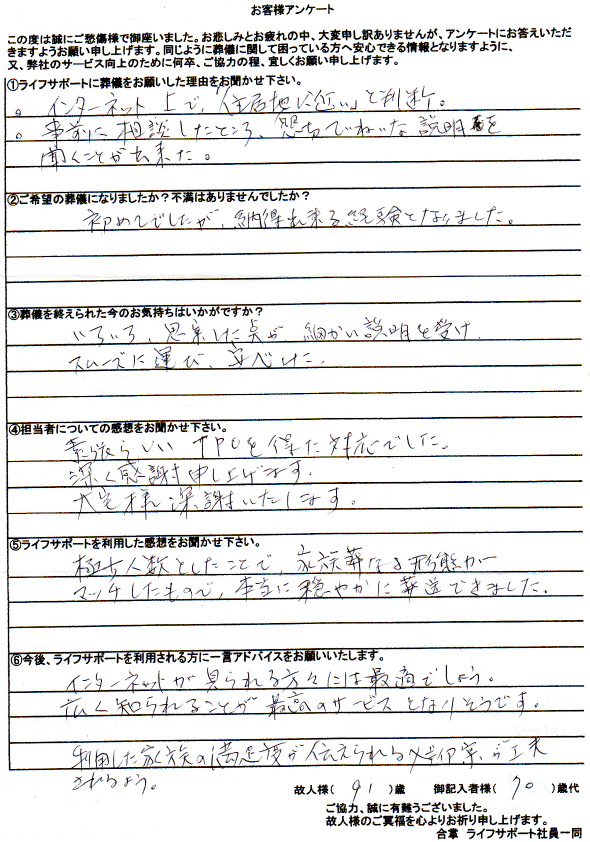 お客様アンケート
この度は誠にご愁傷様で御座いました。お悲しみとお疲れの中、大変申し訳ありませんが、アンケートにお答えいただ
きますようお願い申し上げます。同じように葬儀に関して困っている方へ安心できる情報となりますように、
又、弊社のサービス向上のために何卒、ご協力の程、宜しくお願い申し上げます。
①ライフサポートに葬儀をお願いした理由をお聞かせ下さい。
。インターネット上で、「住居地に近い」と判断。
。事前に相談したところ、懇ちていねいな説明を
聞くことが出来た。
②ご希望の葬儀になりましたか？不満はありませんでしたか？
初めてでしたが、納得出来る経験となりました。
③葬儀を終えられた今のお気持ちはいかがですか？
いろいろ、思案した点が、細かい説明を受け、
スムーズに運び、
④担当者についての感想をお聞かせ下さい。
素晴らしい TPOを得た対応でした。
深く感謝申し上げます。
大宅様 深謝いたします。
⑤ライフサポートを利用した感想をお聞かせ下さい。
極少人数としたことで、家族葬なる形態が
マッチしたもので、本当に穏やかに葬送できました。
⑥今後、ライフサポートを利用される方に一言アドバイスをお願いいたします。
インターネットが見られる方々には最適でしょう。
広く知られることが最高のサービスとなりそうです。
利用した家族の満足度が伝えられる 工夫
されるよう。
故人様( 91 )歳 御記入者様( 70 )歳代
ご協力、誠に有難うございました。
故人様のご冥福を心よりお祈り申し上げます。
合掌 ライフサポート社員一同